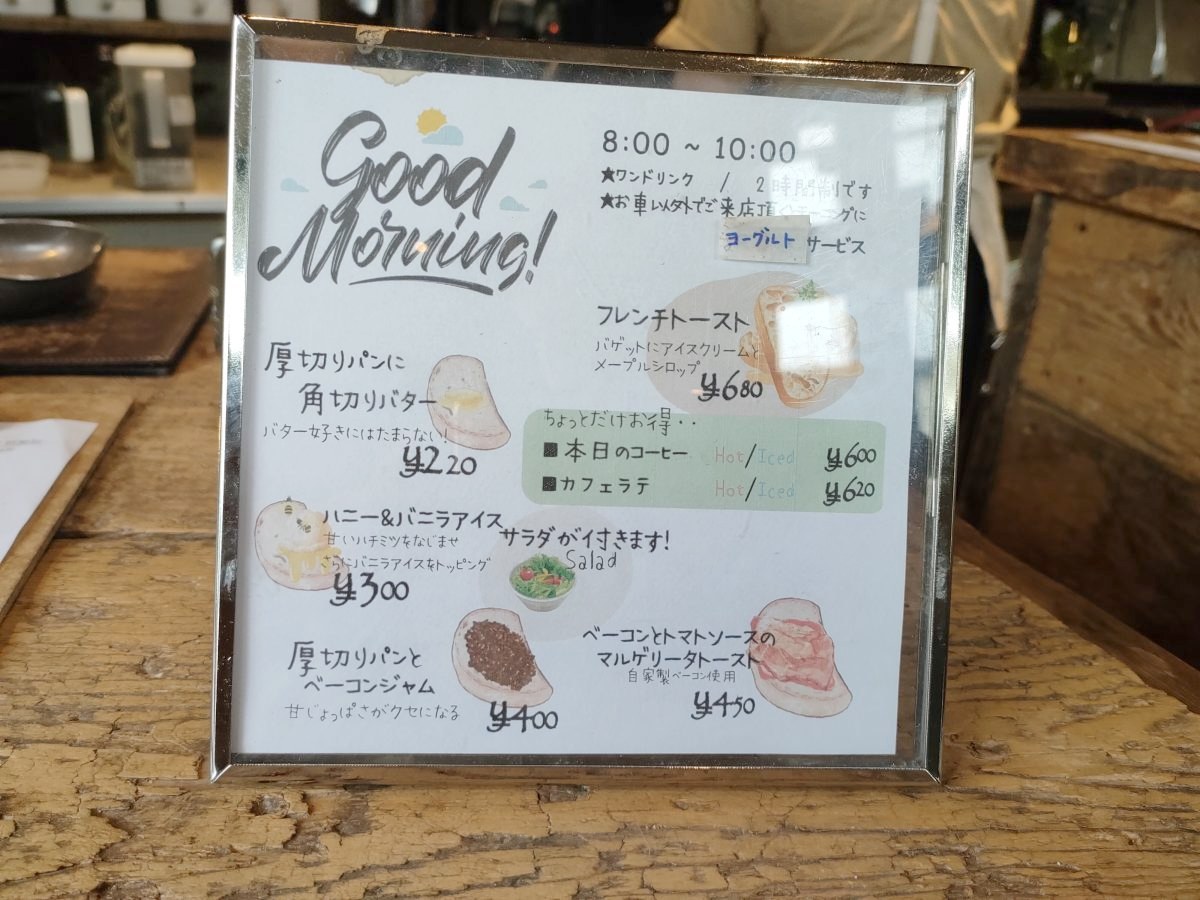 Good
Morning!
8:00 ~ 10:00
★ワンドリンク / 2時間制です
★お車以外でご来店頂くモーニングに
ヨーグルト サービス
フレンチトースト
バゲットにアイスクリームと
メープルシロップ
¥680
厚切りパンに
角切りバター
バター好きにはたまらない!
¥220
ちょっとだけお得・・
■本日のコーヒー Hot/Iced ¥600
■カフェラテ Hot/Iced ¥620
ハニー&バニラアイス
甘いハチミツをなじませ
さらにバニラアイスをトッピング
¥300
サラダが付きます!
Salad
厚切りパンと
ベーコンジャム
甘じょっぱさがクセになる
¥400
ベーコンとトマトソースの
マルゲリータトースト
自家製ベーコン使用
¥450